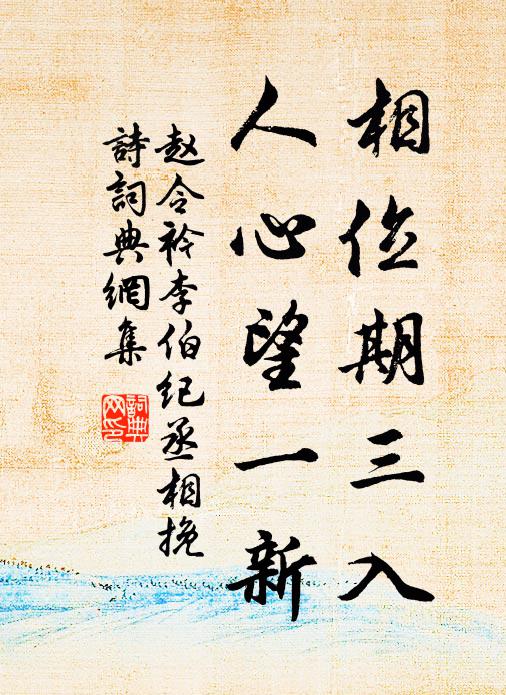 相位期三入
人心望一新
赵令衿李伯纪丞相挽
詩詞典網集
詞典网印